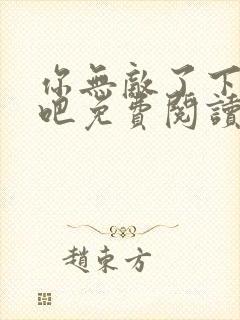 你無敵了下
吧免費閱讀
趙東方